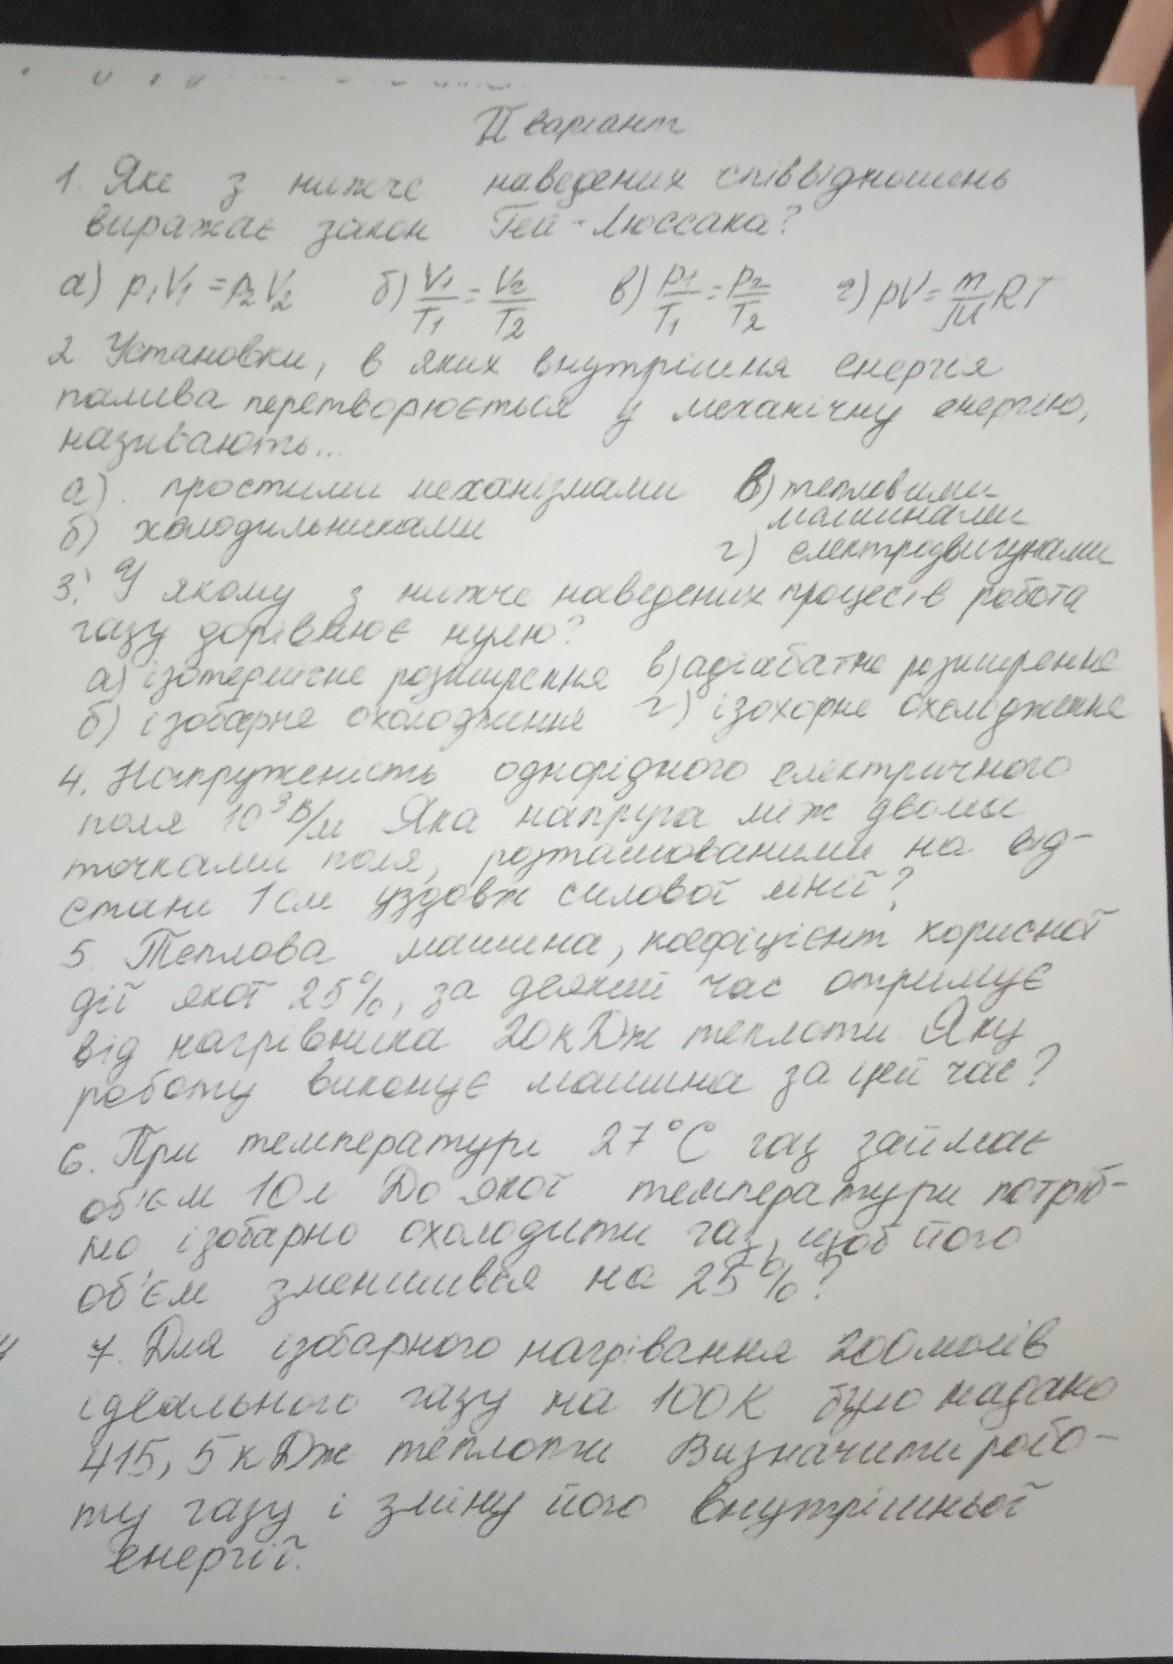 II варіант
1. Яке з нижче наведених співвідношень
виражає закон Гей-Люссака?
а) p₁V₁ = p₂V₂ б) V₁/T₁ = V₂/T₂ в) p₁/T₁ = p₂/T₂ г) pV = m/M RT
2. Установки, в яких внутрішня енергія
палива перетворюється у механічну енергію,
називають...
а) простими механізмами в) тепловими
машинами
б) холодильниками
г) електродвигунами
3. У якому з нижче наведених процесів робота
газу дорівнює нулю?
а) ізотермічне розширення в) адіабатне розширення
б) ізобарне охолодження г) ізохорне охолодження
4. Напруженість однорідного електричного
поля 10³ В/м Яка напруга між двома
точками поля, розташованими на від-
стані 1 см уздовж силової лінії?
5. Теплова машина, коефіцієнт корисної
дії якої 25%, за деякий час отримує
від нагрівника 20 кДж теплоти. Яку
роботу виконує машина за цей час?
6. При температурі 27°C газ займає
об'єм 10 л До якої температури потріб-
но ізобарно охолодити газ, щоб його
об'єм зменшився на 25%?
7. Для ізобарного нагрівання 200 молів
ідеального газу на 100К було надано
415,5 кДж теплоти Визначити робо-
ту газу і зміну його внутрішньої
енергії.